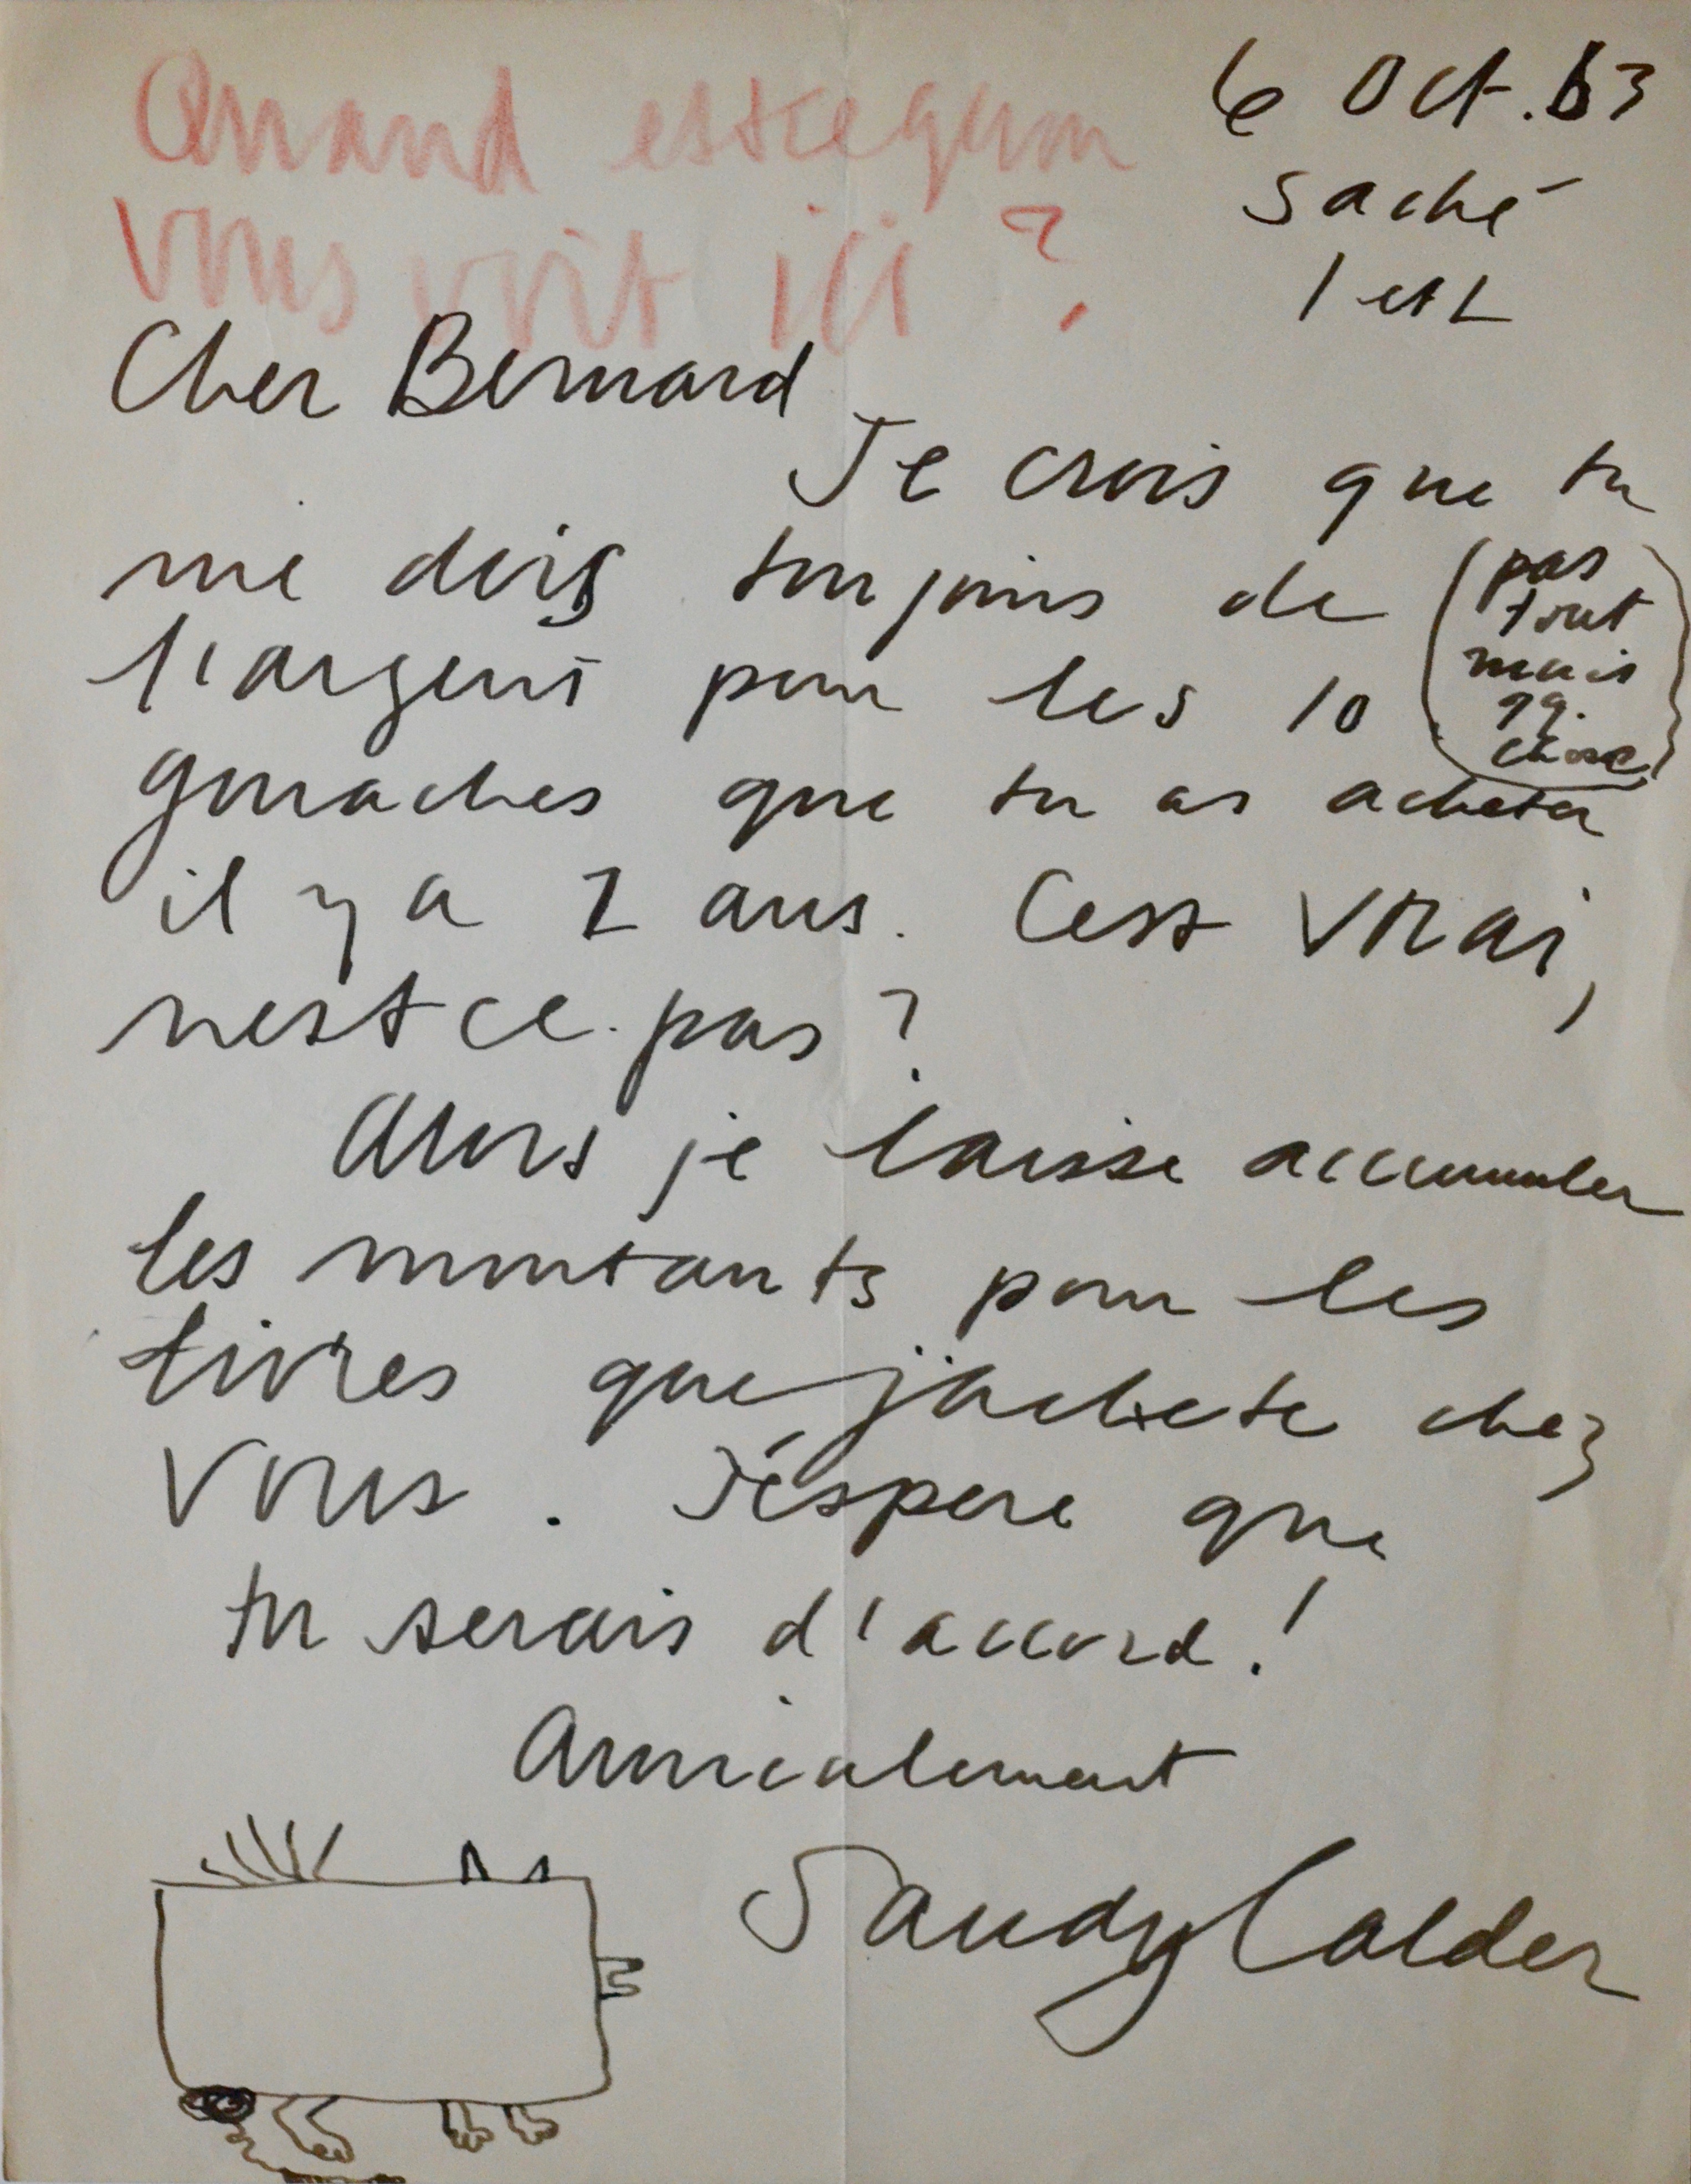 Quand estcequon
vous voit ici ?
6 Oct. 63
Saché
I et L
Cher Bernard
Je crois que tu
me dois toujours de
(pas
tout
mais
qq.
chose)
l'argent pour les 10
gouaches que tu as acheter
il y a 2 ans. Cest vrai,
nest ce pas ?
Alors je laisse accumuler
les montants pour les
livres que j'achete chez
vous. J'éspere que
tu serais d'accord !
Amicalement
Sandy Calder